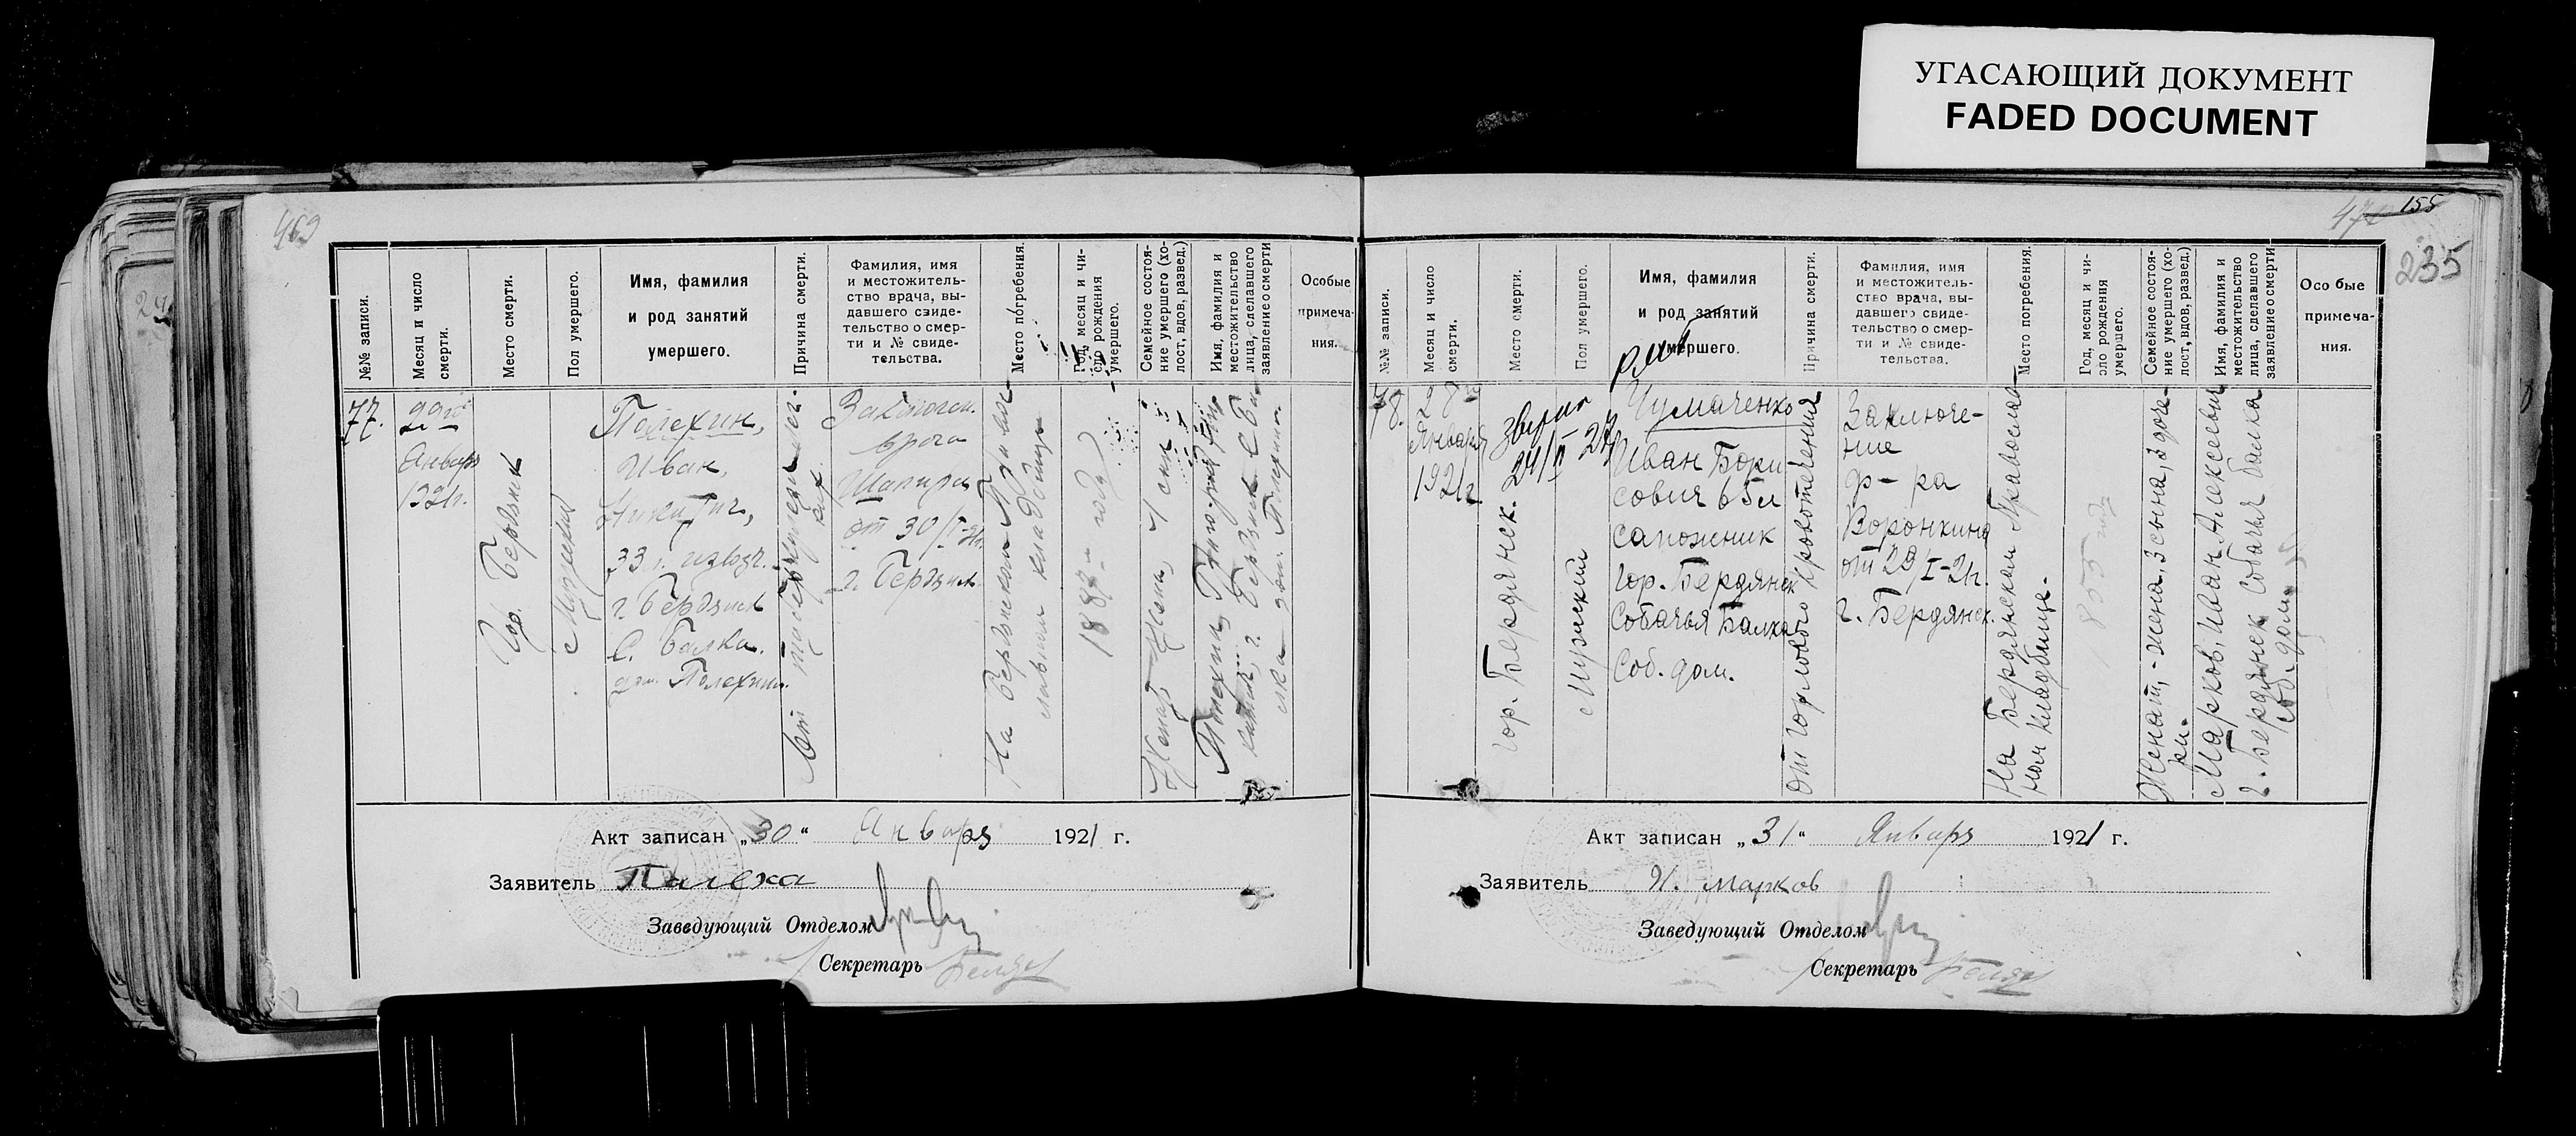 УГАСАЮЩИЙ ДОКУМЕНТ
FADED DOCUMENT
469
№№ записи.
Месяц и число
смерти.
Место смерти.
Пол умершего.
Имя, фамилия
и род занятий
умершего.
Причина смерти.
Фамилия, имя
и местожитель-
ство врача, вы-
давшего свиде-
тельство о смер-
ти и № свиде-
тельства.
Место погребения.
Год, месяц и чи-
сло рождения
умершего.
Семейное состоя-
ние умершего (хо-
лост, вдов, развед.)
Имя, фамилия и
местожительство
лица, сделавшего
заявление о смерти
Особые
примеча-
ния.
77.
29го
Января
1921г.
Гор. Бердянск
Мужской
Полехин,
Иван,
Никитич,
33 г. извозч.
г. Бердянск
С. Балка.
дом. Полехина.
От туберкулеза лег-
ких.
Заключен.
врача
Шапиро
от 30/I-21г.
г. Бердянск
На Бердянском Право-
славном кладбище
1887 году
Женат, Жена, 4 сын
Полехин, Григорий
г. Бердянск С. Ба-
лка дом. Полехина.
Акт записан „30“ Января 1921 г.
Заявитель Полеха
Заведующий Отделом
Секретарь
155
235
№№ записи.
Месяц и число
смерти.
Место смерти.
Пол умершего.
Имя, фамилия
и род занятий
умершего.
Причина смерти.
Фамилия, имя
и местожитель-
ство врача, вы-
давшего свиде-
тельство о смер-
ти и № свиде-
тельства.
Место погребения.
Год, месяц и чи-
сло рождения
умершего.
Семейное состоя-
ние умершего (хо-
лост, вдов, развед.)
Имя, фамилия и
местожительство
лица, сделавшего
заявление о смерти
Осо бые
примеча-
ния.
78.
28го
Января
1921г.
24/II 21
Гор. Бердянск.
Мужский
Чумаченко
Иван Бори-
сович 65л
сапожник
гор. Бердянск
Собачья Балка
Соб. дом.
От горлового кровотечения
Заключе-
ние
д-ра
Воронкина
от 29/I-21г.
г. Бердянск.
На Бердянском Православ-
ном кладбище.
1855 году
Женат, - жена, 3 сына, 3 доче-
ри.
Марков, Иван Алексеевич
г. Бердянск Собачья балка
соб. дом.
Акт записан „31“ Января 1921 г.
Заявитель И. Марков
Заведующий Отделом
Секретарь